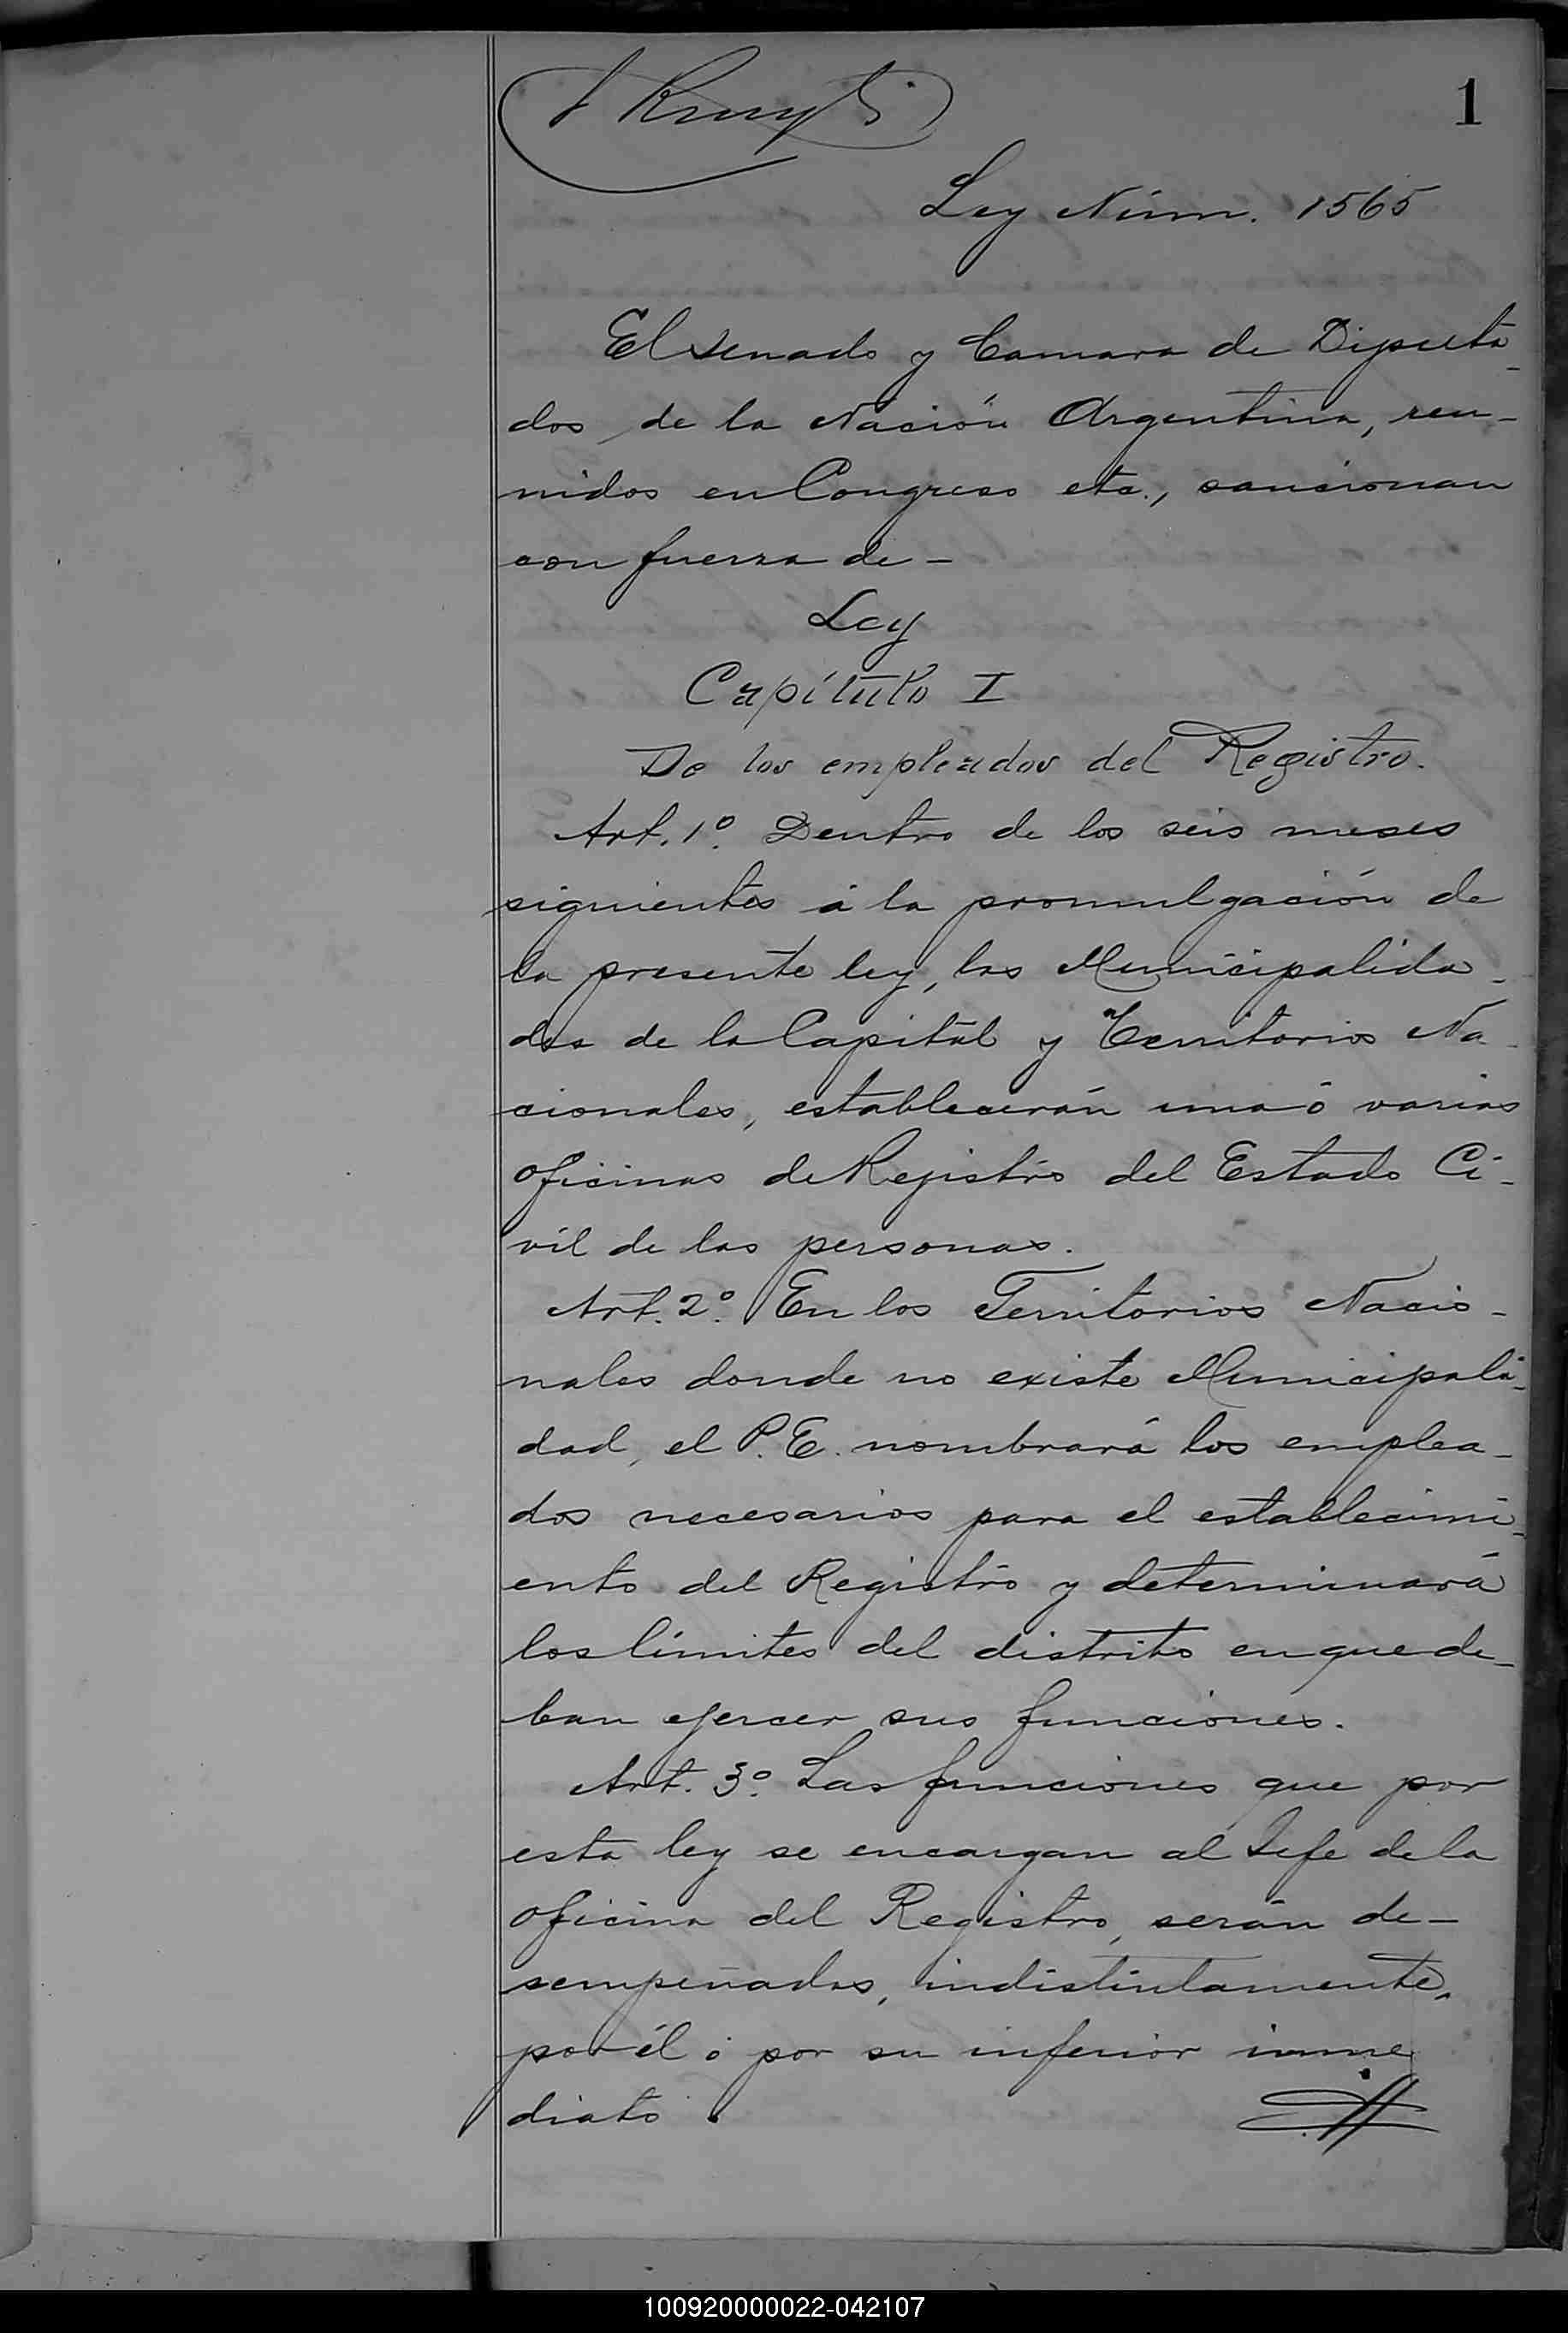 1
Ley Núm. 1565
El Senado y Camara de Diputa-
dos de la Nación Argentina, reu-
nidos en Congreso etc., sancionan
con fuerza de-
Ley
Capítulo I
De los empleados del Registro.
Art. 1º. Dentro de los seis meses
siguientes á la promulgación de
la presente ley, las Municipalida-
des de la Capital y Territorios Na-
cionales, establecerán una ó varias
oficinas de Registro del Estado Ci-
vil de las personas.
Art. 2º. En los Territorios Nacio-
nales donde no existe Municipali-
dad, el P.E. nombrará los emplea-
dos necesarios para el establecimi-
ento del Registro y determinará
los límites del distrito en que de-
ban ejercer sus funciones.
Art. 3º. Las funciones que por
esta ley se encargan al Jefe de la
oficina del Registro, serán de-
sempeñadas, indistintamente,
por él ó por su inferior inme
diato.
100920000022-042107